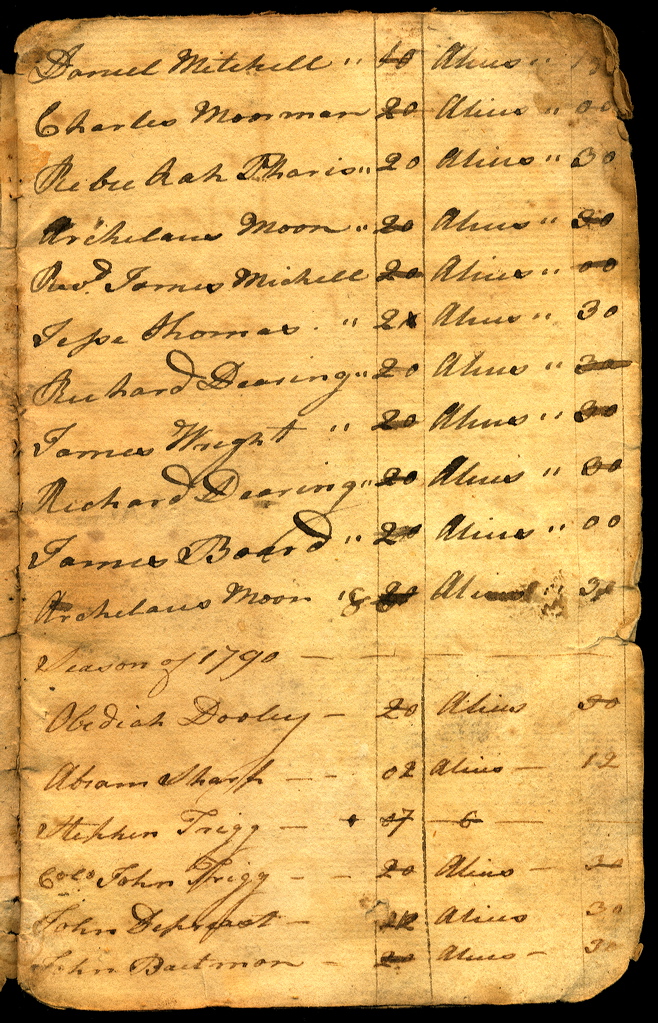 Daniel Mitchell " 40 Alius "
Charles Moorman 20 Alius " 00
Rebeckah Pharis " 20 Alius " 30
Archelaus Moon " 20 Alius " 30
Revd. James Michell 20 Alius " 00
Jesse Thomas . " 2 Alius " 30
Richard Dearing " 20 Alius " 30
James Wright " 20 Alius " 30
Richard Dearing " 20 Alius " 30
James Board " 20 Alius " 00
Archelaus Moon " 20 Alius " 30
Season of 1790 —
Obediah Dooley – 20 Alius 30
Abram Sharp – – 02 Alius – 12
Stephen Trigg – 17 – 6 –
Colo John Trigg – – 20 Alius – 30
John – Alius 30
John Baetman – 20 Alius – 30